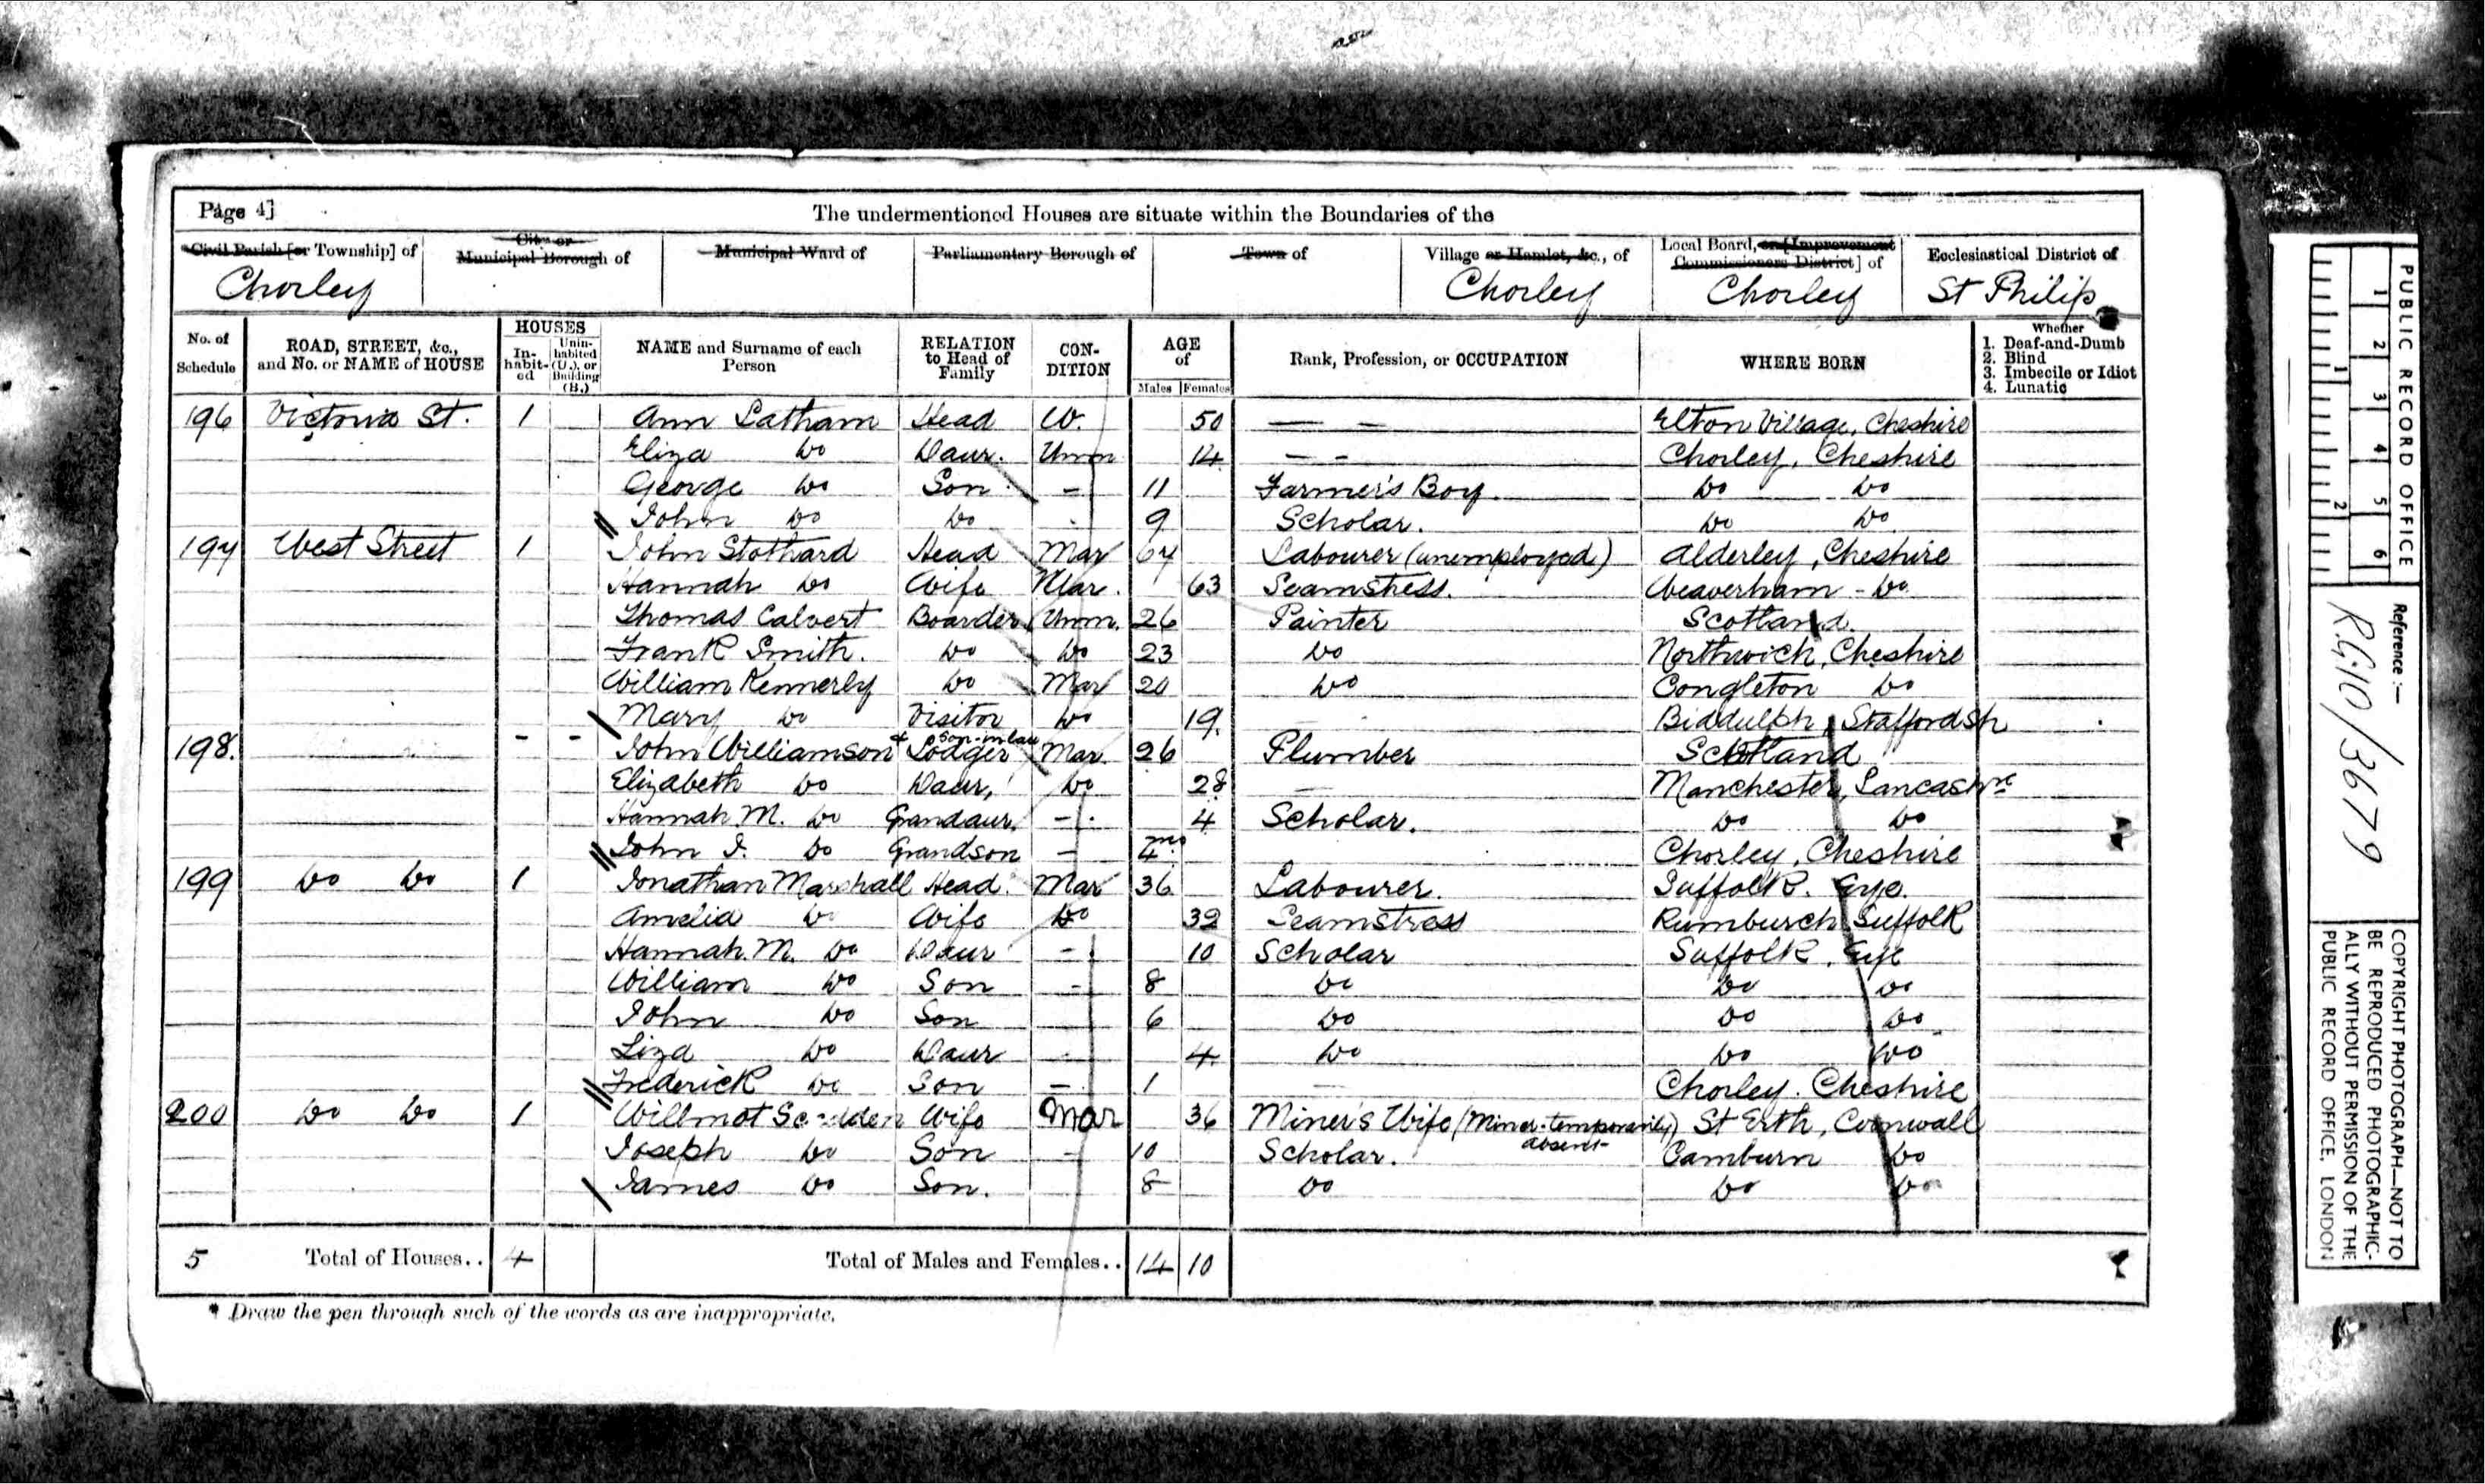 Page 4]
The undermentioned Houses are situate within the Boundaries of the
Civil Parish [or Township] of
City or Municipal Borough of
Municipal Ward of
Parliamentary Borough of
Town of
Village or Hamlet, &c., of
Local Board, or [Improvement Commissioners District] of
Ecclesiastical District of
Chorley Chorley Chorley St Philip
No. of Schedule
ROAD, STREET, &c., and No. or NAME of HOUSE
HOUSES
In-habit-ed
Unin-habited (U.), or Building (B.)
NAME and Surname of each Person
RELATION to Head of Family
CON-DITION
AGE of
Males Females
Rank, Profession, or OCCUPATION
WHERE BORN
Whether
1. Deaf-and-Dumb
2. Blind
3. Imbecile or Idiot
4. Lunatic
196 Victoria St. 1 Ann Latham Head W. 50 — — Elton Village, Cheshire
Eliza Do Daur. Unm 14 — — Chorley, Cheshire
George Do Son — 11 Farmer's Boy. Do Do
John Do Do 9 Scholar. Do Do
197 West Street 1 John Stothard Head Mar 64 Labourer (unemployed) Alderley, Cheshire
Hannah Do Wife Mar. 63 Seamstress. Weaverham - Do
Thomas Calvert Boarder Unm. 26 Painter Scotland.
Frank Smith. Do Do 23 Do Northwich, Cheshire
William Kennerly Do Mar 20 Do Congleton Do
Mary Do Visitor Do 19. Biddulph, Staffordsh
198. - - John Williamson Son-in-law & Lodger Mar. 26 Plumber Scotland
Elizabeth Do Daur, Do 28 — Manchester, Lancashre
Hannah M. Do Grandaur. — 4 Scholar. Do Do
John I. Do Grandson — 4 mo Chorley, Cheshire
199 Do Do 1 Jonathan Marshall Head Mar 36 Labourer. Suffolk. Eye.
Amelia Do Wife Do 32 Seamstress Rumburch Suffolk
Hannah. M. Do Daur — 10 Scholar Suffolk, Eye
William Do Son — 8 Do Do Do
John Do Son 6 Do Do Do
Liza Do Daur 4 Do Do Do
Frederick Do Son — 1 — Chorley. Cheshire
200 Do Do 1 Willmot Wife Mar 36 Miner's Wife (Miner temporarily absent) St Erth, Cornwall
Joseph Do Son — 10 Scholar. Camburn Do
James Do Son. 8 Do Do Do
5 Total of Houses.. 4 Total of Males and Females.. 14 10
* Draw the pen through such of the words as are inappropriate.
PUBLIC RECORD OFFICE
1 2 3 4 5 6
1 2
Reference :—
R.G.10/3679
COPYRIGHT PHOTOGRAPH—NOT TO
BE REPRODUCED PHOTOGRAPHIC-
ALLY WITHOUT PERMISSION OF THE
PUBLIC RECORD OFFICE, LONDON